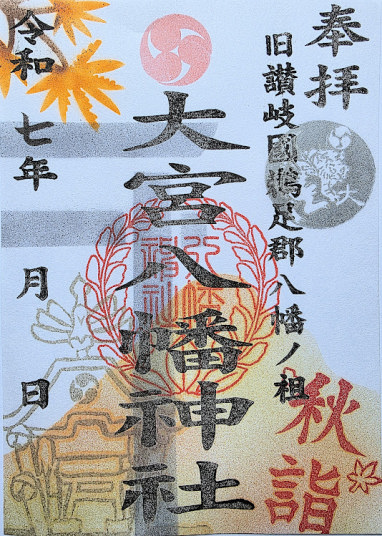 奉拝
旧讃岐國鵜足郡八幡ノ祖
大宮八幡神社
令和七年 月 日
秋詣